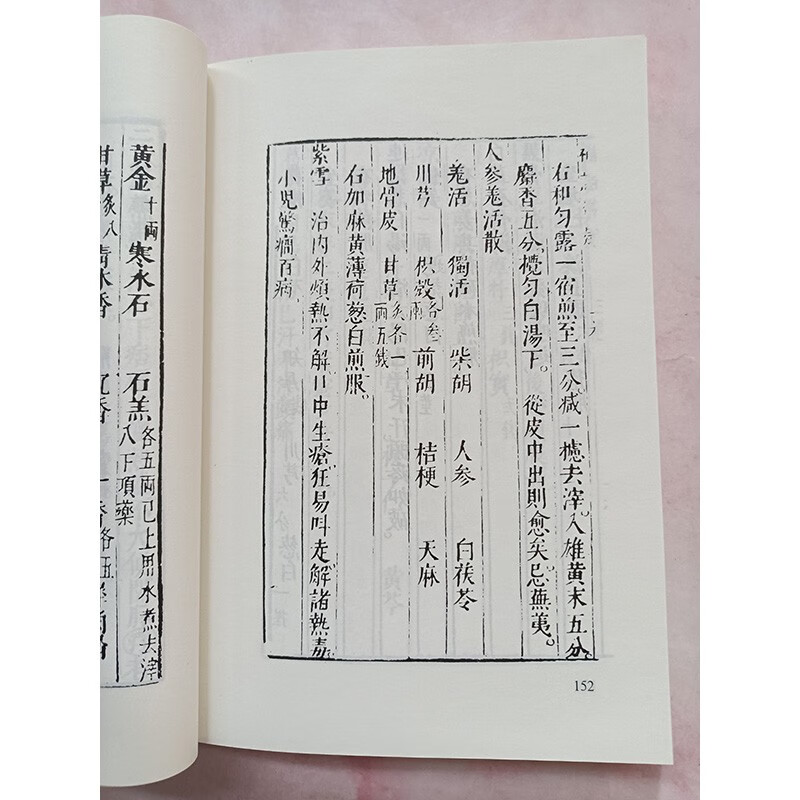 右和匀露一宿煎至三分減一櫖去滓入雄黄末五分
麝香五分攪匀白湯下從皮中出則愈矣忌蕪荑
人參羗活散
羗活 獨活 柴胡 人參 白茯苓
川芎一兩 枳殻各叁兩 前胡 桔梗 天麻
地骨皮 甘草炙各一兩五錢
右加麻黄薄荷葱白煎服
紫雪 治内外煩熱不解口中生瘡狂易叫走解諸熱毒
小児驚癇百病
152
黄金十兩 寒水石 石羔各五兩已上用水煮去滓八下項藥
甘草炙八 青木香 沉香